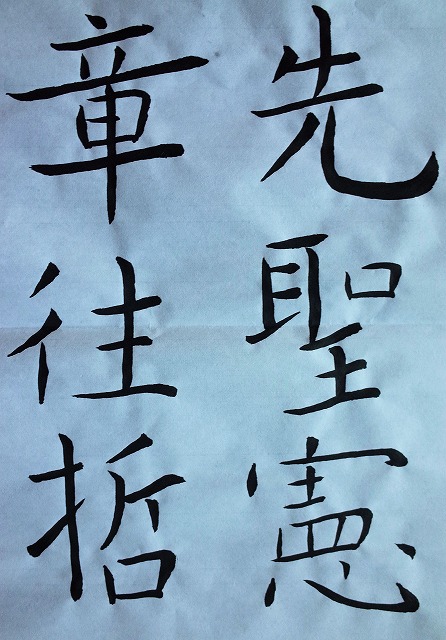 先聖憲
章往哲